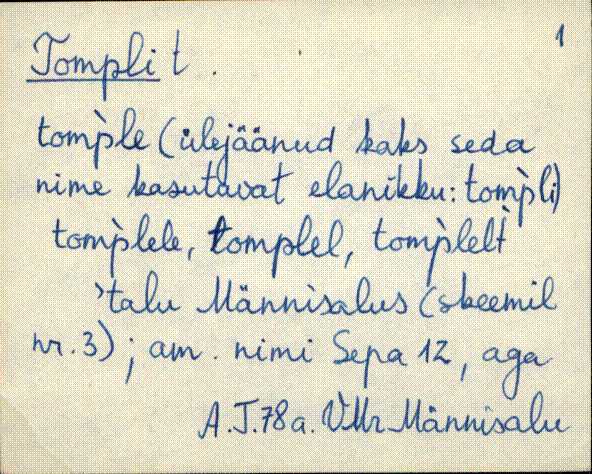 1
Tompli t.
tomp̀le (ülejäänud kaks seda
nime kasutavat elanikku: tomp̀li)
tomp̀lele, tomplel, tomp̀lelt
'talu Männisalus (skeemil
nr. 3); am. nimi Sepa 12, aga
A.J. 78 a. VMr Männisalu